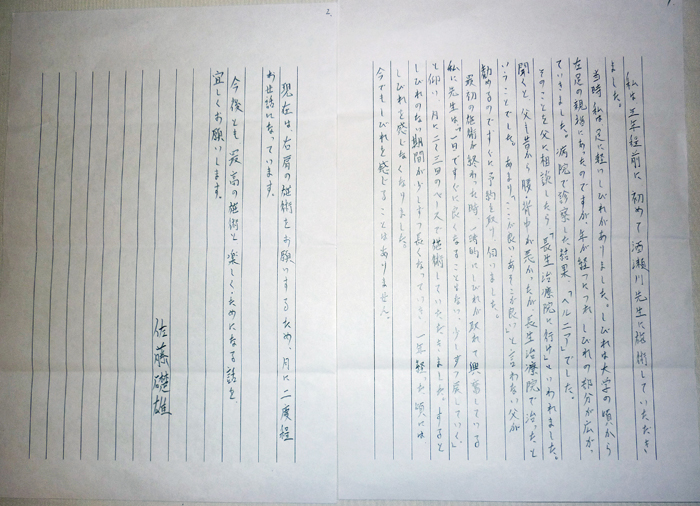 1
私は三年程前に、初めて酒瀬川先生に施術していただき
ました。
当時私は足に軽いしびれがありました。しびれは大学の頃から
左足の親指にあったのですが年が経つにつれしびれの部分が広が
っていきました。病院で診察した結果、「ヘルニア」でした。
そのことを父に相談したら「長生治療院に行け」といわれました。
聞くと、父も昔から腰・背中が悪かったが長生治療院で治ったと
いうことでした。あまり「ここが良いあそこが良い」と言わない父が
勧めるのですぐに予約を取り、伺いました。
最初の施術が終わった時、一時的にしびれが取れて興奮している
私に先生は、「一日ですぐに良くなることもない、少しずつ戻していく」
と仰い、月に二、三回のペースで施術していただきました。すると
しびれのない期間が少しずつ長くなっていき、一年経った頃には
しびれを感じなくなりました。
今でもしびれを感じることはありません。
2
現在は、右肩の施術をお願いするため、月に二度程
お世話になっています。
今後とも、最高の施術と楽しくためになる話を
宜しくお願いします。
佐藤礎雄